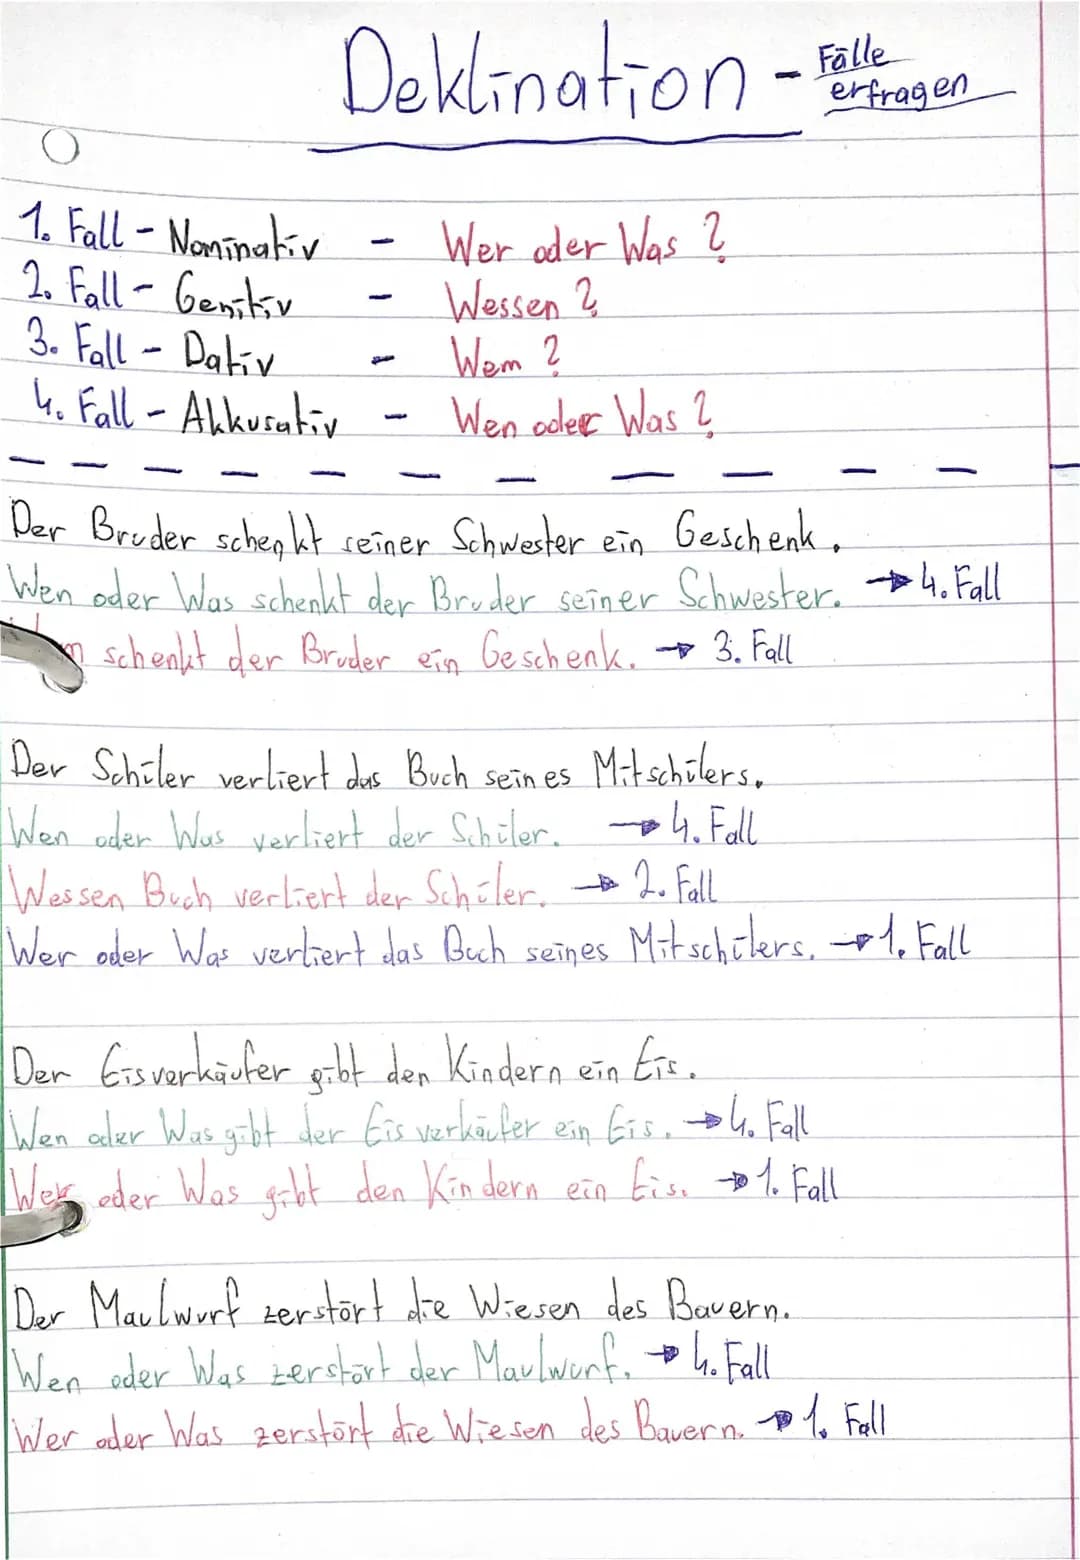 Deklination - Fälle
erfragen
1. Fall - Nominativ - Wer oder Was ?
2. Fall - Genitiv - Wessen ?
3. Fall - Dativ - Wem ?
4. Fall - Akkusativ - Wen oder Was ?
Der Bruder schenkt seiner Schwester ein Geschenk.
Wen oder Was schenkt der Bruder seiner Schwester. → 4. Fall
schenkt der Bruder ein Geschenk. → 3. Fall
Der Schüler verliert das Buch seines Mitschülers.
Wen oder Was verliert der Schüler. → 4. Fall
Wessen Buch verliert der Schüler. → 2. Fall
Wer oder Was verliert das Buch seines Mitschülers. → 1. Fall
Der Eisverkäufer gibt den Kindern ein Eis.
Wen oder Was gibt der Eisverkäufer ein Eis. → 4. Fall
Wer oder Was gibt den Kindern ein Eis. → 1. Fall
Der Maulwurf zerstört die Wiesen des Bauern.
Wen oder Was zerstört der Maulwurf. → 4. Fall
Wer oder Was zerstört die Wiesen des Bauern. → 1. Fall